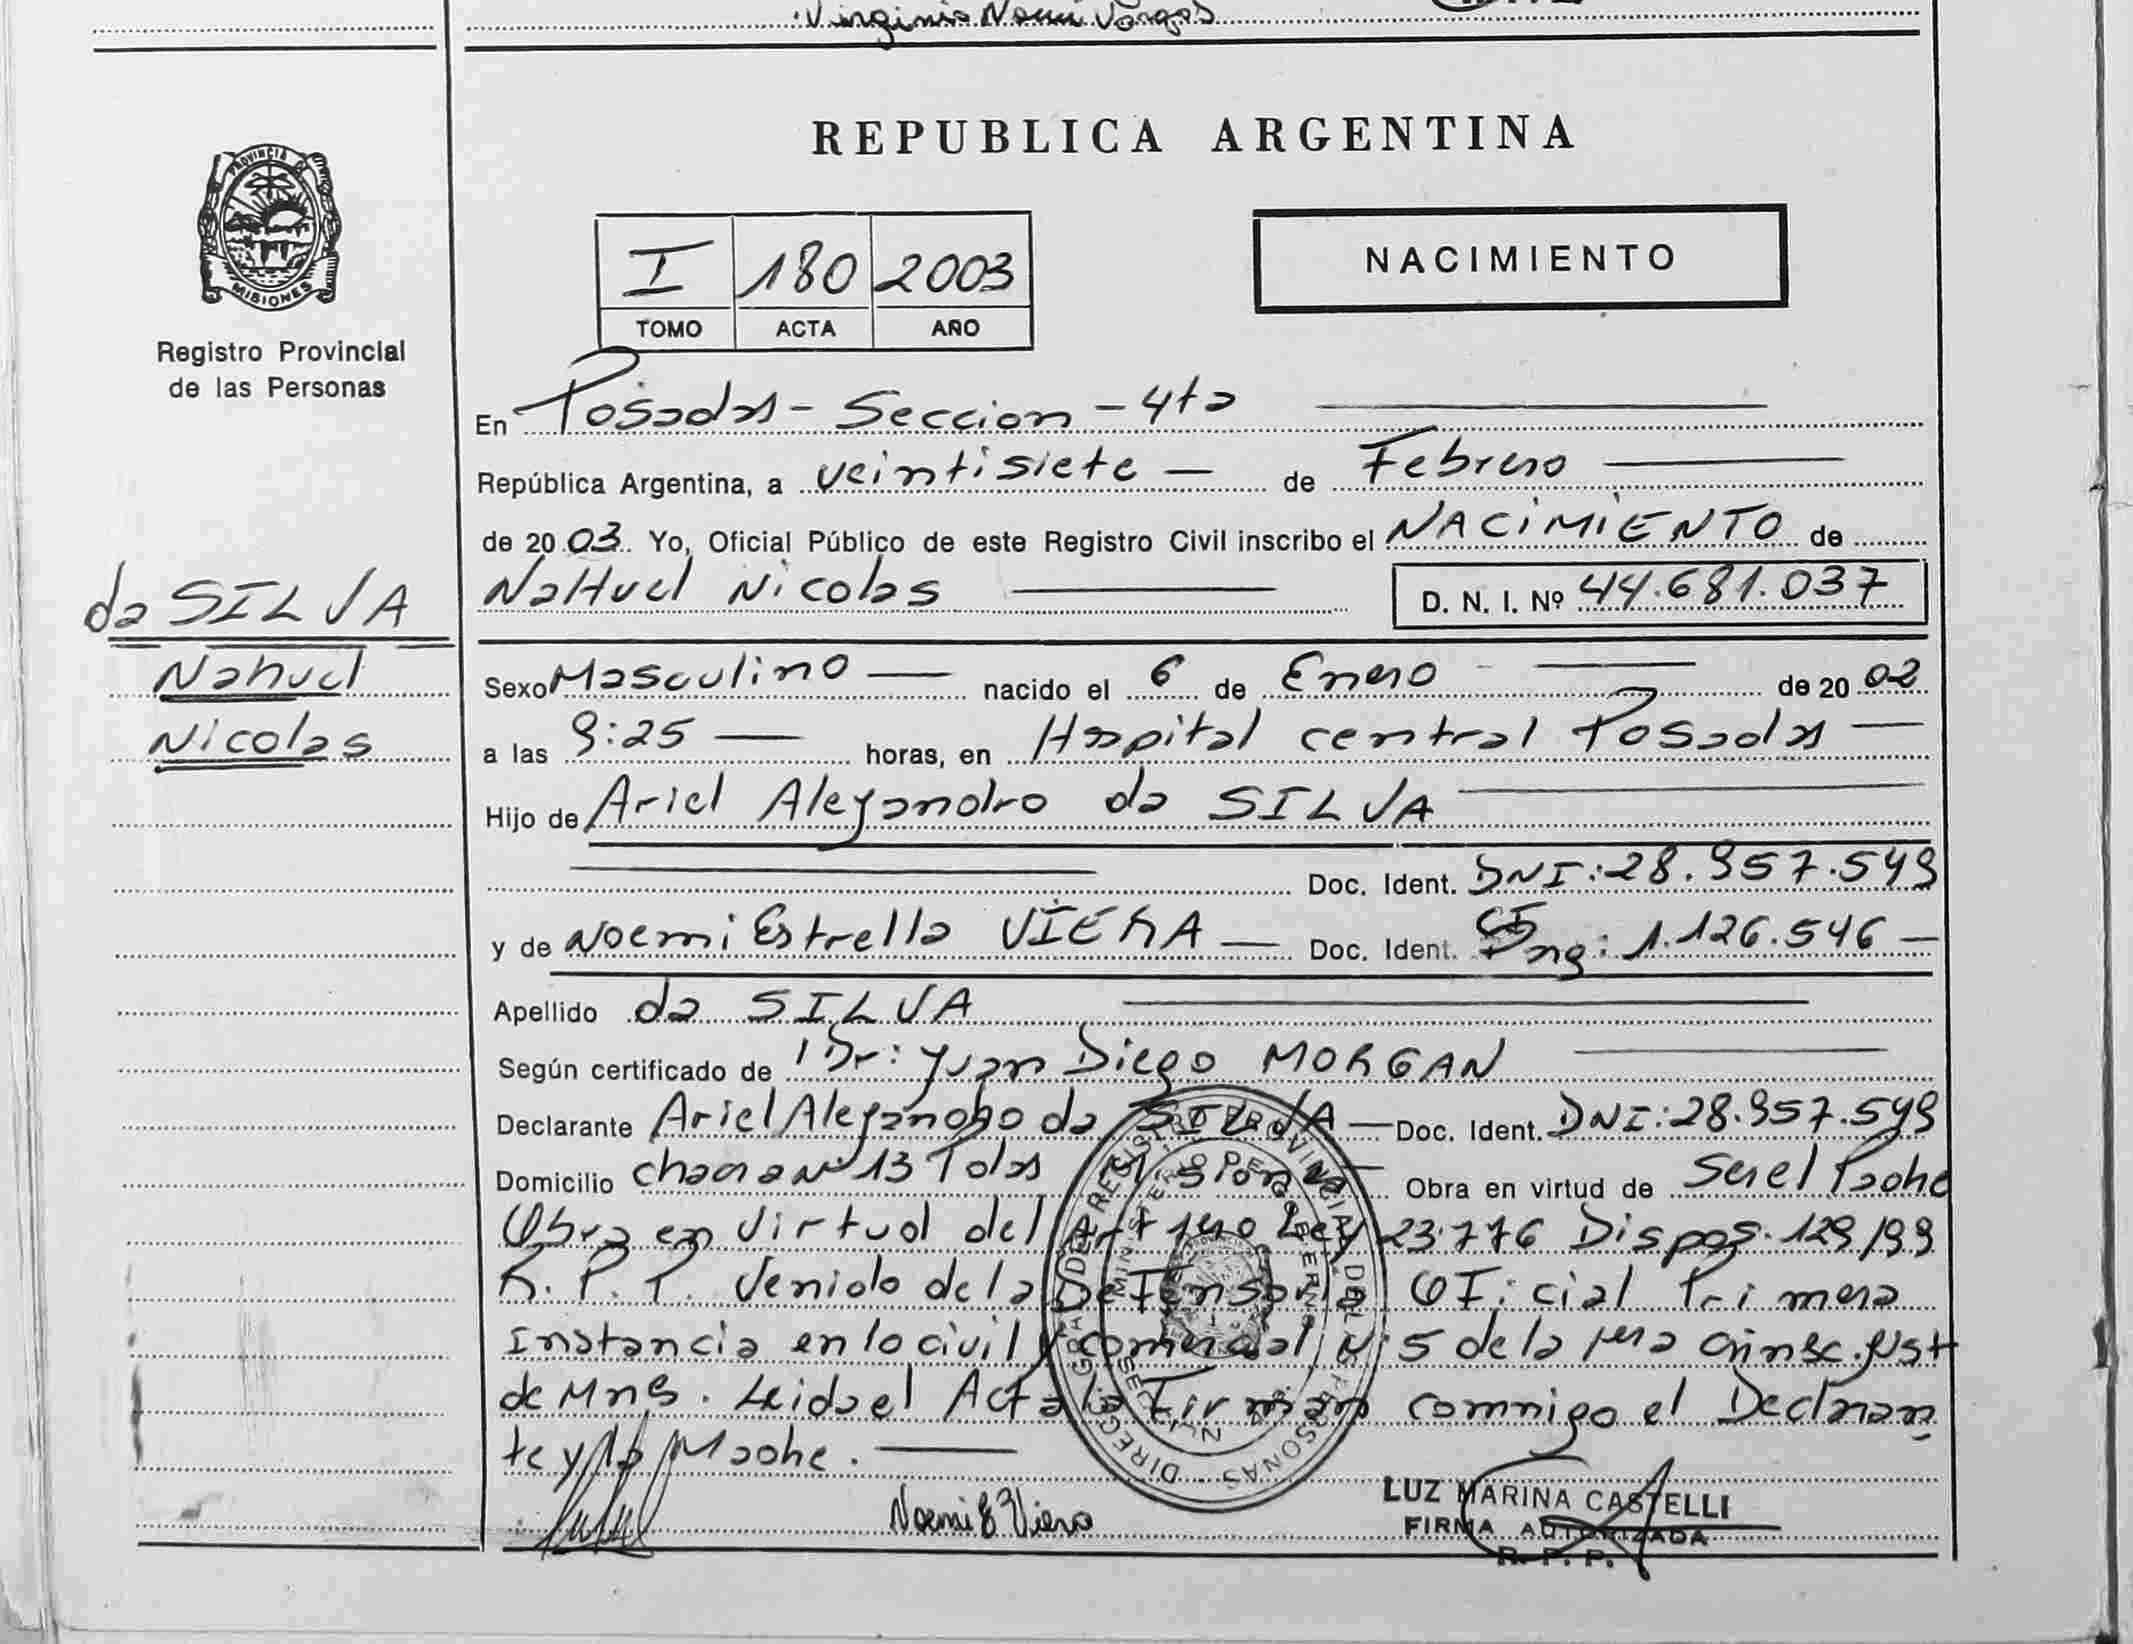 Virginia Noemi Vargas
PROVINCIA DE
MISIONES
Registro Provincial
de las Personas
da SILVA
Nahuel
Nicolas
REPUBLICA ARGENTINA
I 180 2003
TOMO ACTA AÑO
NACIMIENTO
En Posadas - Seccion - 4ta
República Argentina, a veintisiete — de Febrero
de 20 03. Yo, Oficial Público de este Registro Civil inscribo el NACIMIENTO de
NaHuel Nicolas D. N. I. Nº 44.681.037
Sexo Masculino — nacido el 6 de Enero de 20 02
a las 9:25 — horas, en Hospital central Posadas —
Hijo de Ariel Alejandro da SILVA
Doc. Ident. DNI: 28.957.549
y de Noemi Estrella VIERA — Doc. Ident. 1.126.546 —
Apellido da SILVA
Según certificado de Dr: Juan Diego MORGAN
Declarante Ariel Alejandro da SILVA — Doc. Ident. DNI: 28.957.549
Domicilio chacra Nº 13 Pdas Misiones Obra en virtud de Ser el Padre
Obra en virtud del Art 1ero Ley 23.776 Dispos. 129/99
R. P. P. Venido de la Defensoria Oficial Primera
Instancia en lo civil y comercial Nº 5 de la 1era Circunsc. Just
de Mnes. Leida el Acta la Firman conmigo el Declaran
te y la Madre.
Noemi E Viera
DIREC. GRAL. DEL REGISTRO PROVINCIAL DE LAS PERSONAS
MINISTERIO DE GOBIERNO
LUZ MARINA CASTELLI
FIRMA AUTORIZADA
R. P. P.